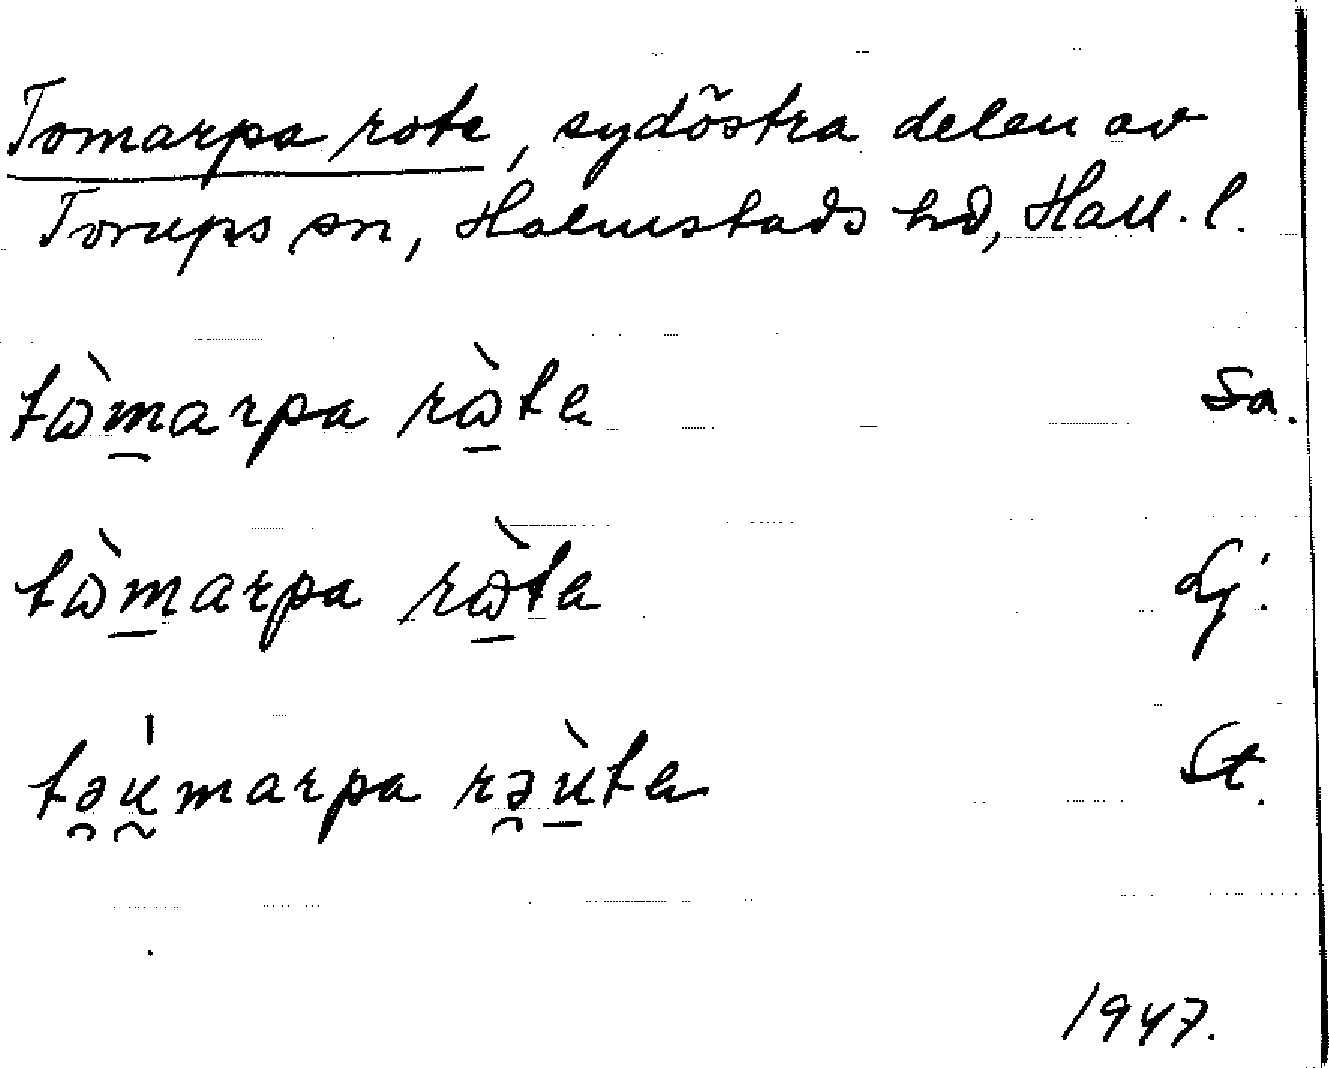 Tomarpa rote, sydöstra delen av
Torups sn, Halmstads hd, Hall. l.
tὼm̲arpa rὼ̲ta Sa.
tὼm̲arpa rὼ̲ta Lj.
tə̯úmarpa rə̯ù̲ta St.
1947.